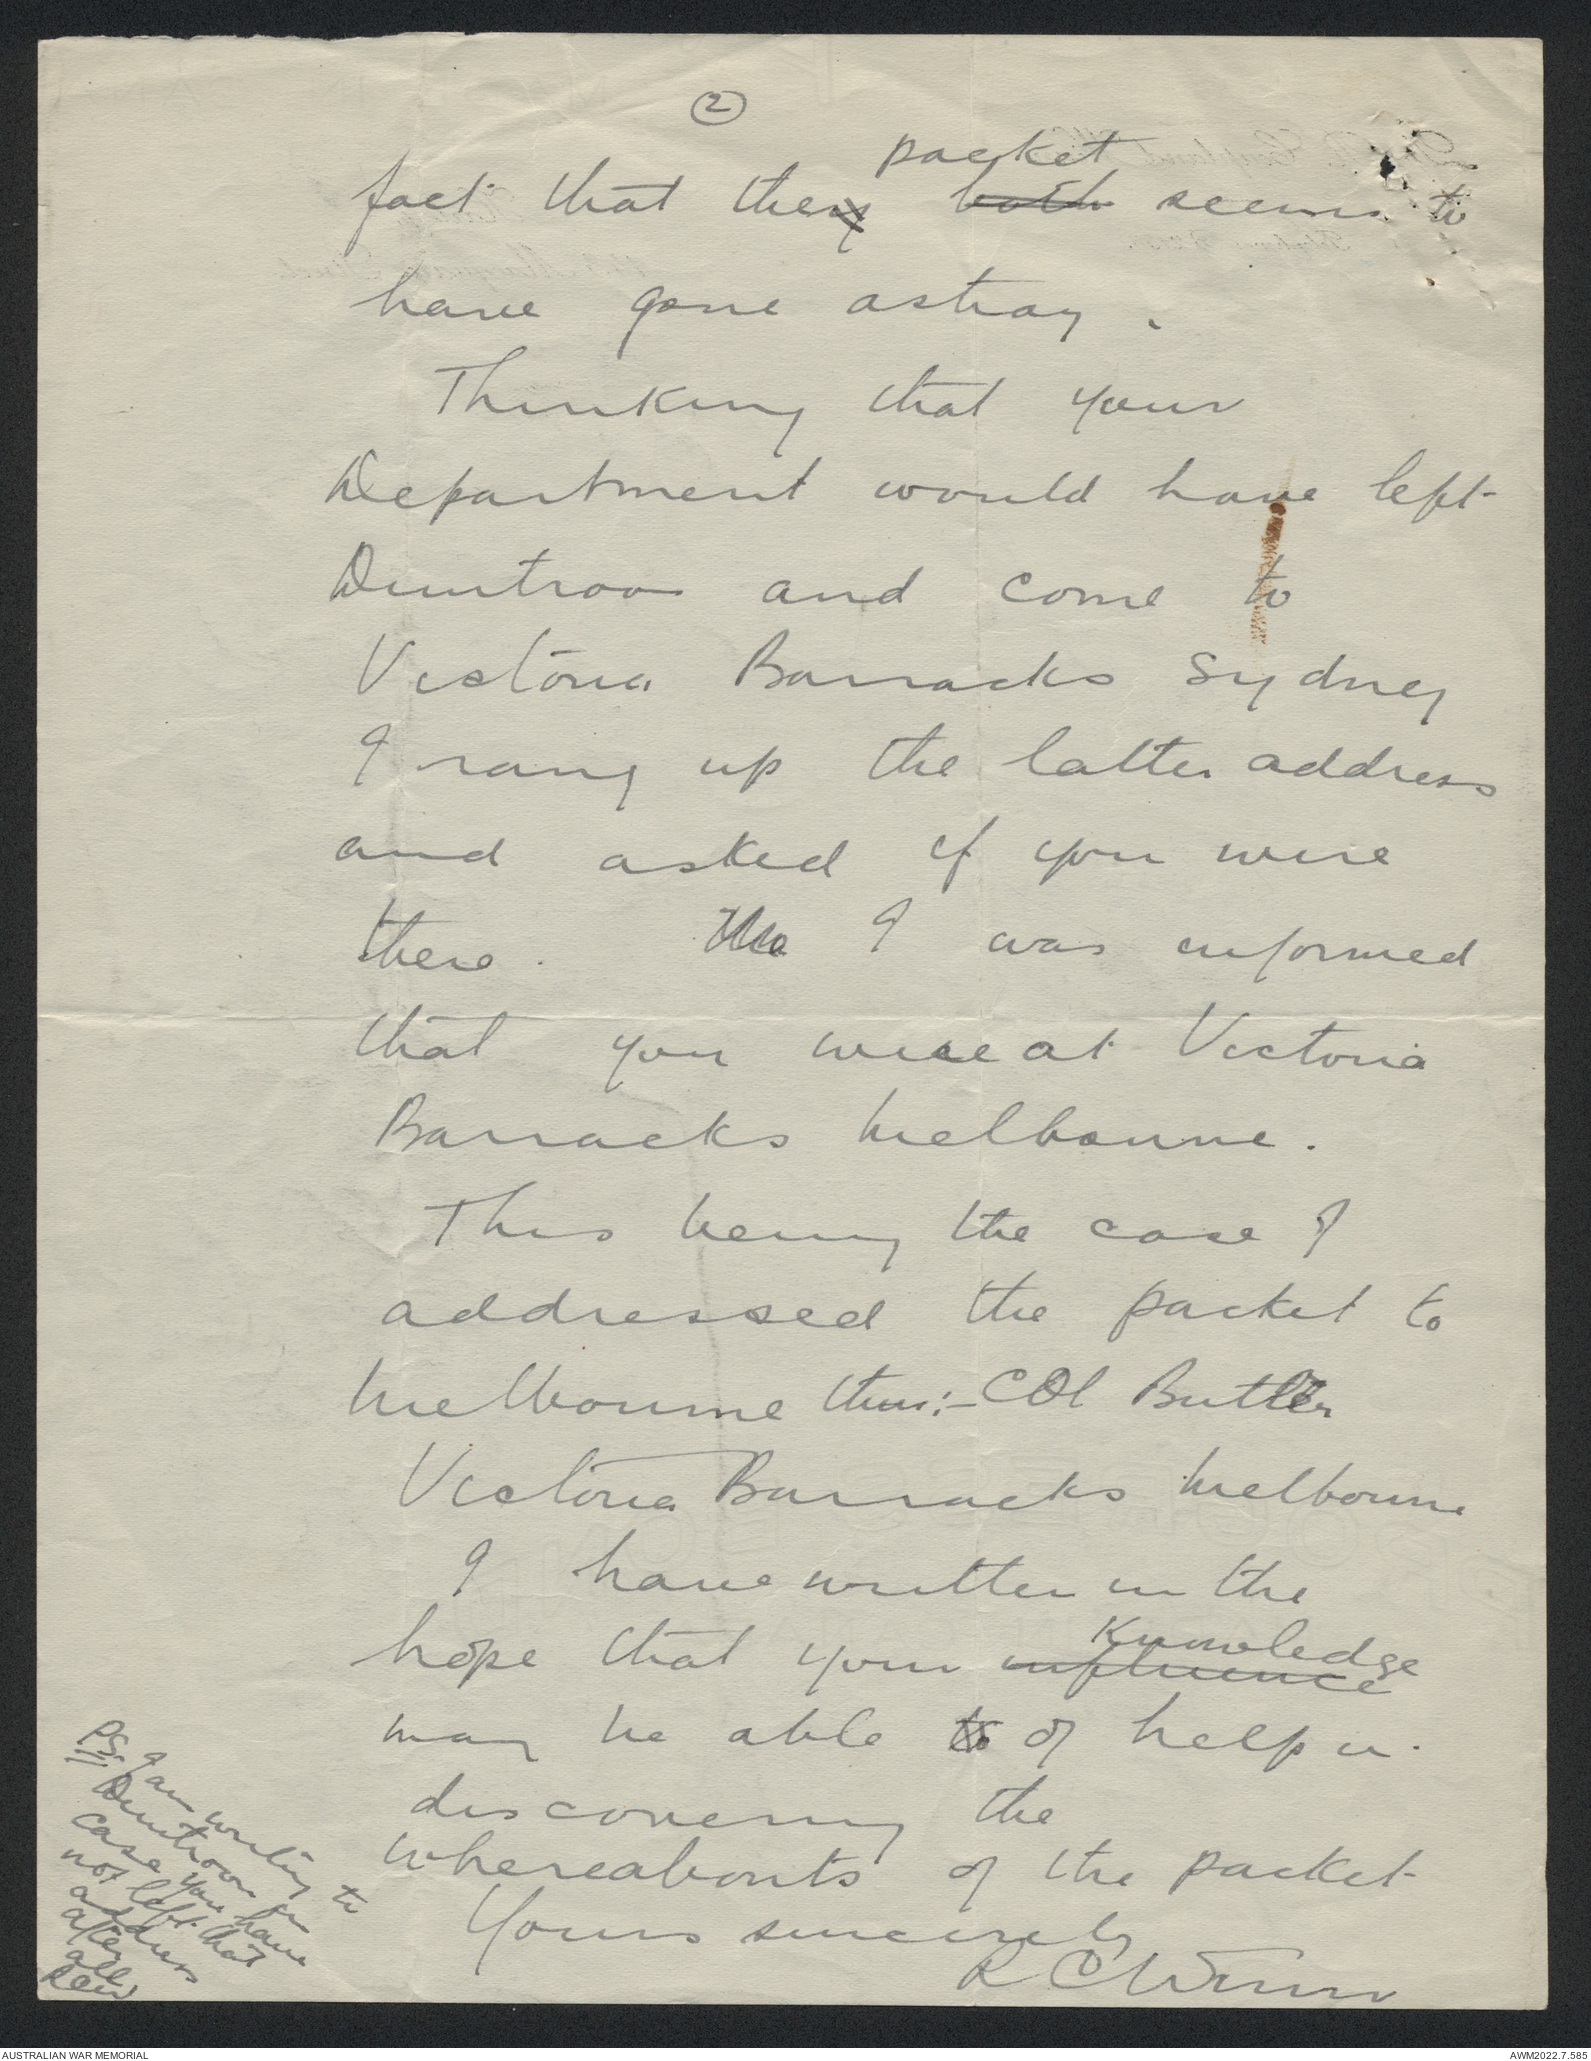 2
packet
fact that they both seems to
have gone astray.
Thinking that your
Department would have left
Duntroon and come to
Victoria Barracks Sydney
I rang up the latter address
and asked if you were
there. The I was informed
that you were at Victoria
Barracks Melbourne.
This being the case I
addressed the packet to
Melbourne thus:- COl Butler
Victoria Barracks Melbourne
I have written in the
hope that your influence
Knowledge
may be able to of help in
discovering the
whereabouts of the packet
Yours sincerely
R C Winn
PS. I am writing to
Duntroon in
case you have
not left that
address
after
all
RCW
AUSTRALIAN WAR MEMORIAL
AWM2022.7.585